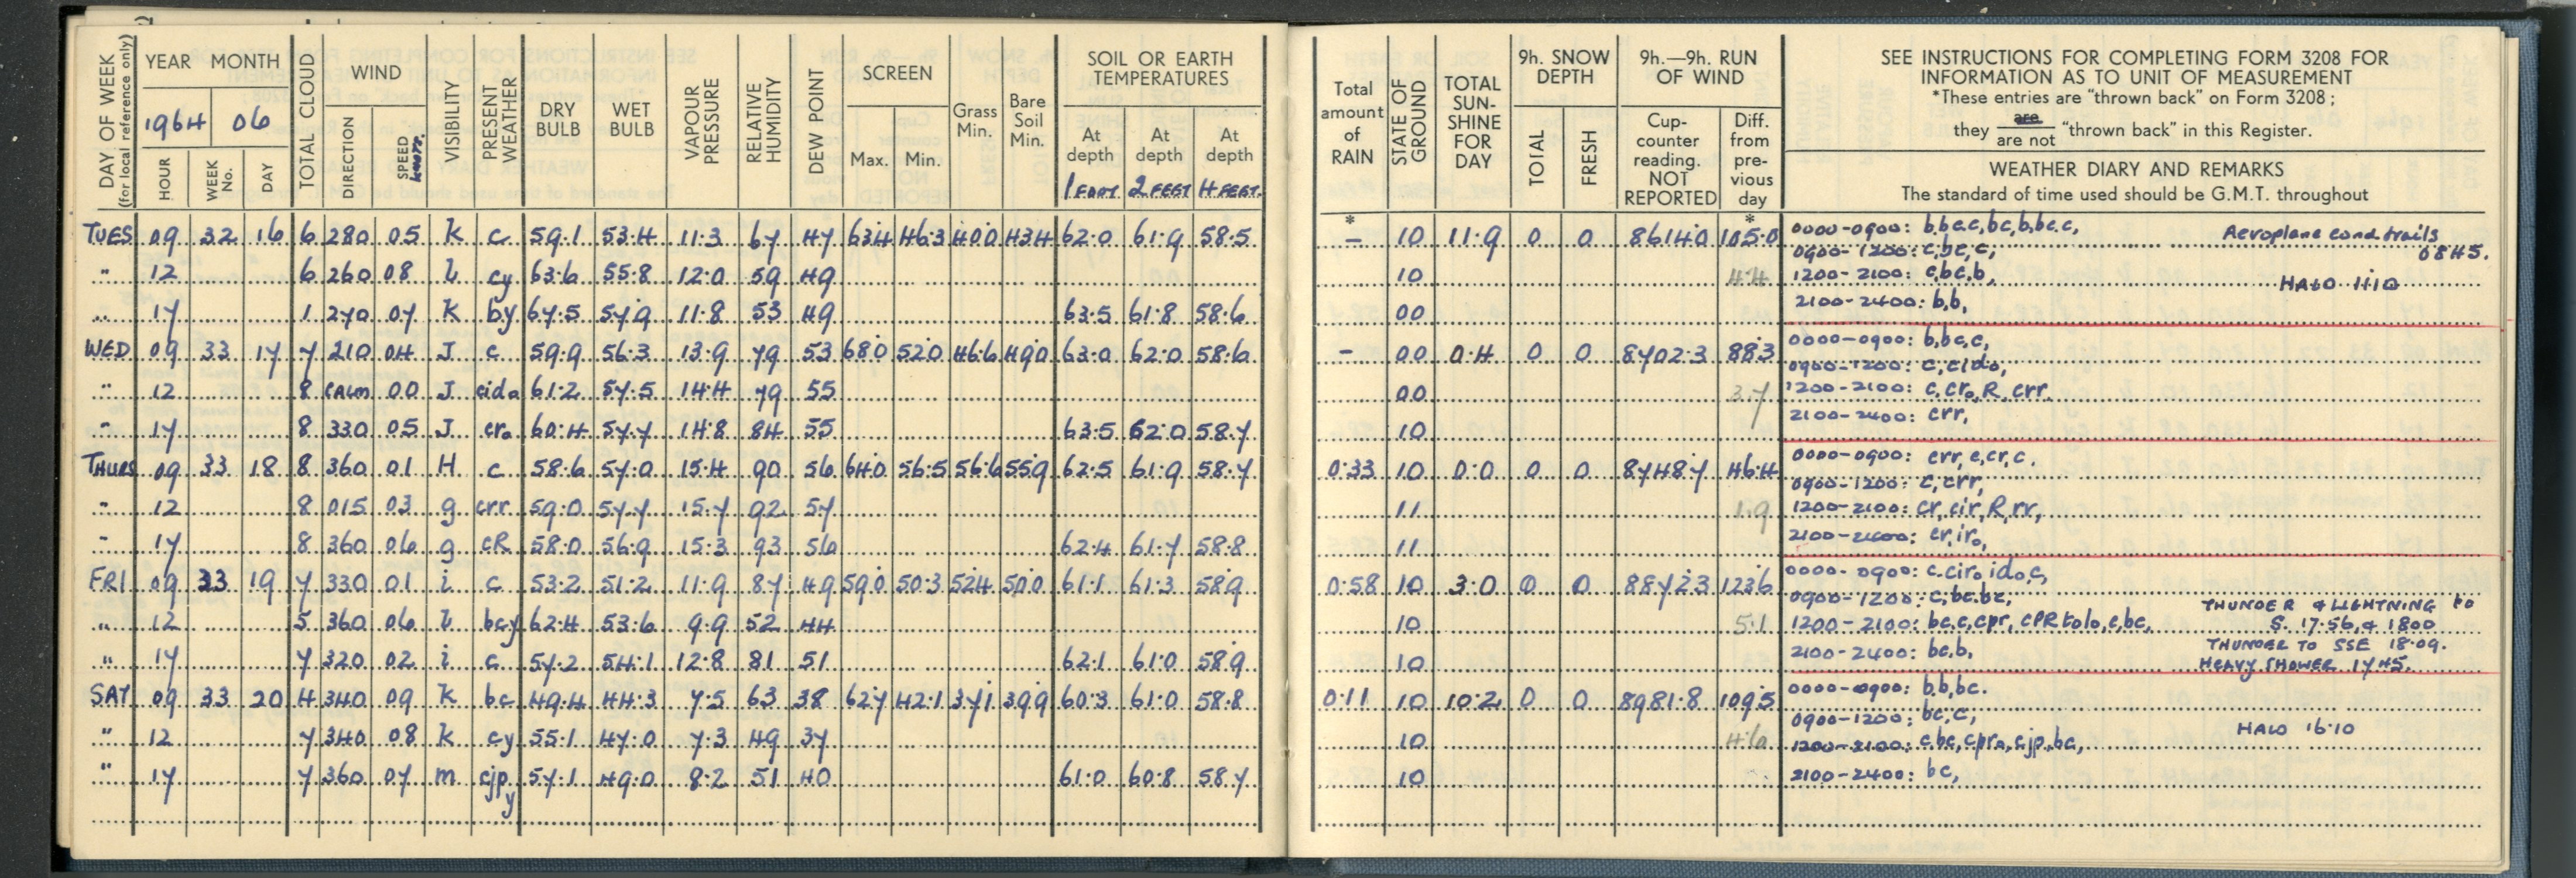 DAY OF WEEK (for local reference only) YEAR MONTH TOTAL CLOUD WIND VISIBILITY PRESENT WEATHER DRY BULB WET BULB VAPOUR PRESSURE RELATIVE HUMIDITY DEW POINT SCREEN Grass Min. Bare Soil Min. SOIL OR EARTH TEMPERATURES
1964 06
HOUR WEEK No. DAY DIRECTION SPEED knots. Max. Min. At depth At depth At depth
1 FOOT 2 FEET 4 FEET.
Total amount of RAIN STATE OF GROUND TOTAL SUN-SHINE FOR DAY 9h. SNOW DEPTH 9h.—9h. RUN OF WIND
TOTAL FRESH Cup-counter reading. NOT REPORTED Diff. from pre-vious day
SEE INSTRUCTIONS FOR COMPLETING FORM 3208 FOR
INFORMATION AS TO UNIT OF MEASUREMENT
*These entries are "thrown back" on Form 3208;
they are / are not "thrown back" in this Register.
WEATHER DIARY AND REMARKS
The standard of time used should be G.M.T. throughout
TUES 09 32 16 6 280 05 k c 59.1 53.4 11.3 67 47 63.4 46.3 40.0 43.4 62.0 61.9 58.5 * – 10 11.9 0 0 8614.0 * 105.0 0000-0900: b,bc.c,bc,b,bc.c, Aeroplane cond. trails
0900-1200: c,bc,c, 0845.
" 12 6 260 08 l cy 63.6 55.8 12.0 59 49 10 4.4 1200-2100: c,bc,b, HALO 1110
" 17 1 270 07 k by 67.5 57.9 11.8 53 49 63.5 61.8 58.6 00 2100-2400: b,b,
WED 09 33 17 7 210 04 J c 59.9 56.3 13.9 79 53 68.0 52.0 46.6 49.0 63.0 62.0 58.6 – 00 0.4 0 0 8702.3 88.3 0000-0900: b,bc,c,
0900-1200: c,cido,
" 12 8 CALM 00 J cido 61.2 57.5 14.4 79 55 00 3.7 1200-2100: c,cro,R,crr.
" 17 8 330 05 J cro 60.4 57.7 14.8 84 55 63.5 62.0 58.7 10 2100-2400: crr,
THURS 09 33 18 8 360 01 H c 58.6 57.0 15.4 90 56 64.0 56.5 56.6 55.9 62.5 61.9 58.7 0.33 10 0.0 0 0 8748.7 46.4 0000-0900: crr,c,cr,c.
0900-1200: c,crr,
" 12 8 015 03 g crr 59.0 57.7 15.7 92 57 11 1.9 1200-2100: cr,cir,R,rr,
" 17 8 360 06 g cR 58.0 56.9 15.3 93 56 62.4 61.7 58.8 11 2100-2400: cr,iro,
FRI 09 33 19 7 330 01 i c 53.2 51.2 11.9 87 49 59.0 50.3 52.4 50.0 61.1 61.3 58.9 0.58 10 3.0 0 0 8872.3 123.6 0000-0900: c.ciro,ido,c,
0900-1200: c,bc.bc,
" 12 5 360 06 l bcy 62.4 53.6 9.9 52 44 10 5.1 1200-2100: bc,c,cpr,cPRtolo,c,bc, THUNDER & LIGHTNING to S. 17.56, & 1800
" 17 7 320 02 i c 57.2 54.1 12.8 81 51 62.1 61.0 58.9 10 2100-2400: bc,b, THUNDER TO SSE 18.09.
HEAVY SHOWER 1745.
SAT 09 33 20 4 340 09 k bc 49.4 44.3 7.5 63 38 62.7 42.1 37.1 39.9 60.3 61.0 58.8 0.11 10 10.2 0 0 8981.8 109.5 0000-0900: b,b,bc.
0900-1200: bc,c,
" 12 7 340 08 k cy 55.1 47.0 7.3 49 37 10 4.6 1200-2100: c,bc,cpro,cjp.bc, HALO 16.10
" 17 7 360 07 m cjpy 57.1 49.0 8.2 51 40 61.0 60.8 58.7 10 2100-2400: bc,